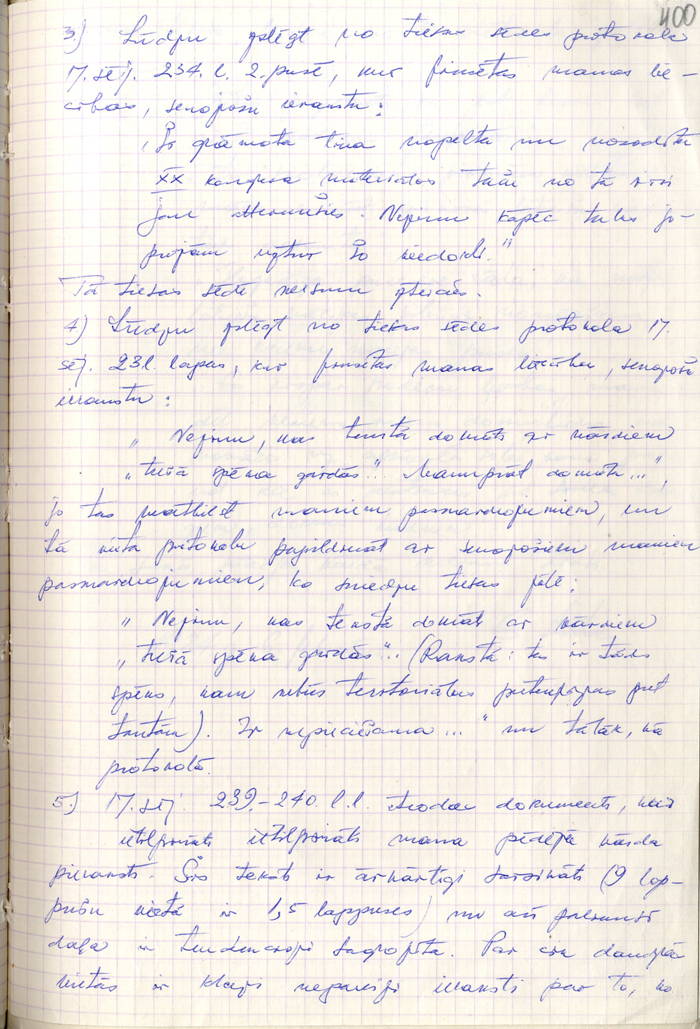 400
3) Lūdzu slēgt no tiesas sēdes protokola
17. sēj. 234. l. 2. pusē, kur fiksētas manas lie-
cības, sekojošu ierakstu:
„Šī grāmata tika nopelta un nosodīta
XX kongresa materiālos taču no tā visi
jau atteikušies. Nezinu kāpēc tiku jo-
projām uztur šo viedokli."
Tā tiesas sēdē neesmu teicis.
4) Lūdzu slēgt no tiesas sēdes protokola 17.
sēj. 231. lapas, kur fiksētas manas liecības, sekojošu
ierakstu:
„Nezinu, kas tekstā domāts ar vārdiem
„trešā spēka gaidās".. Manuprāt domāts...",
jo tas neatbilst maniem paskaidrojumiem, un
tā vietā protokolu papildināt ar sekojošiem maniem
paskaidrojumiem, ko sniedzu tiesas sēdē:
„Nezinu, kas tekstā domāts ar vārdiem
„trešā spēka gaidās".. (Rakstā: tas ir tāds
spēks, kam nebūs teritoriālas pretenzijas pret
tautām). Ir nepieciešama..." un tālāk, kā
protokolā.
5) 17. sēj. 239.-240. l.l. atrodas dokuments, kas
manā pēdējā vārda
pieraksts. Šis teksts ir ārkārtīgi saīsināts (9 lap-
pušu vietā ir 1,5 lappuses) un arī
daļa ir tendenciozi sagrozīta. Par daudzās
vietās ir klaji nepareizi ieraksti par to, ko